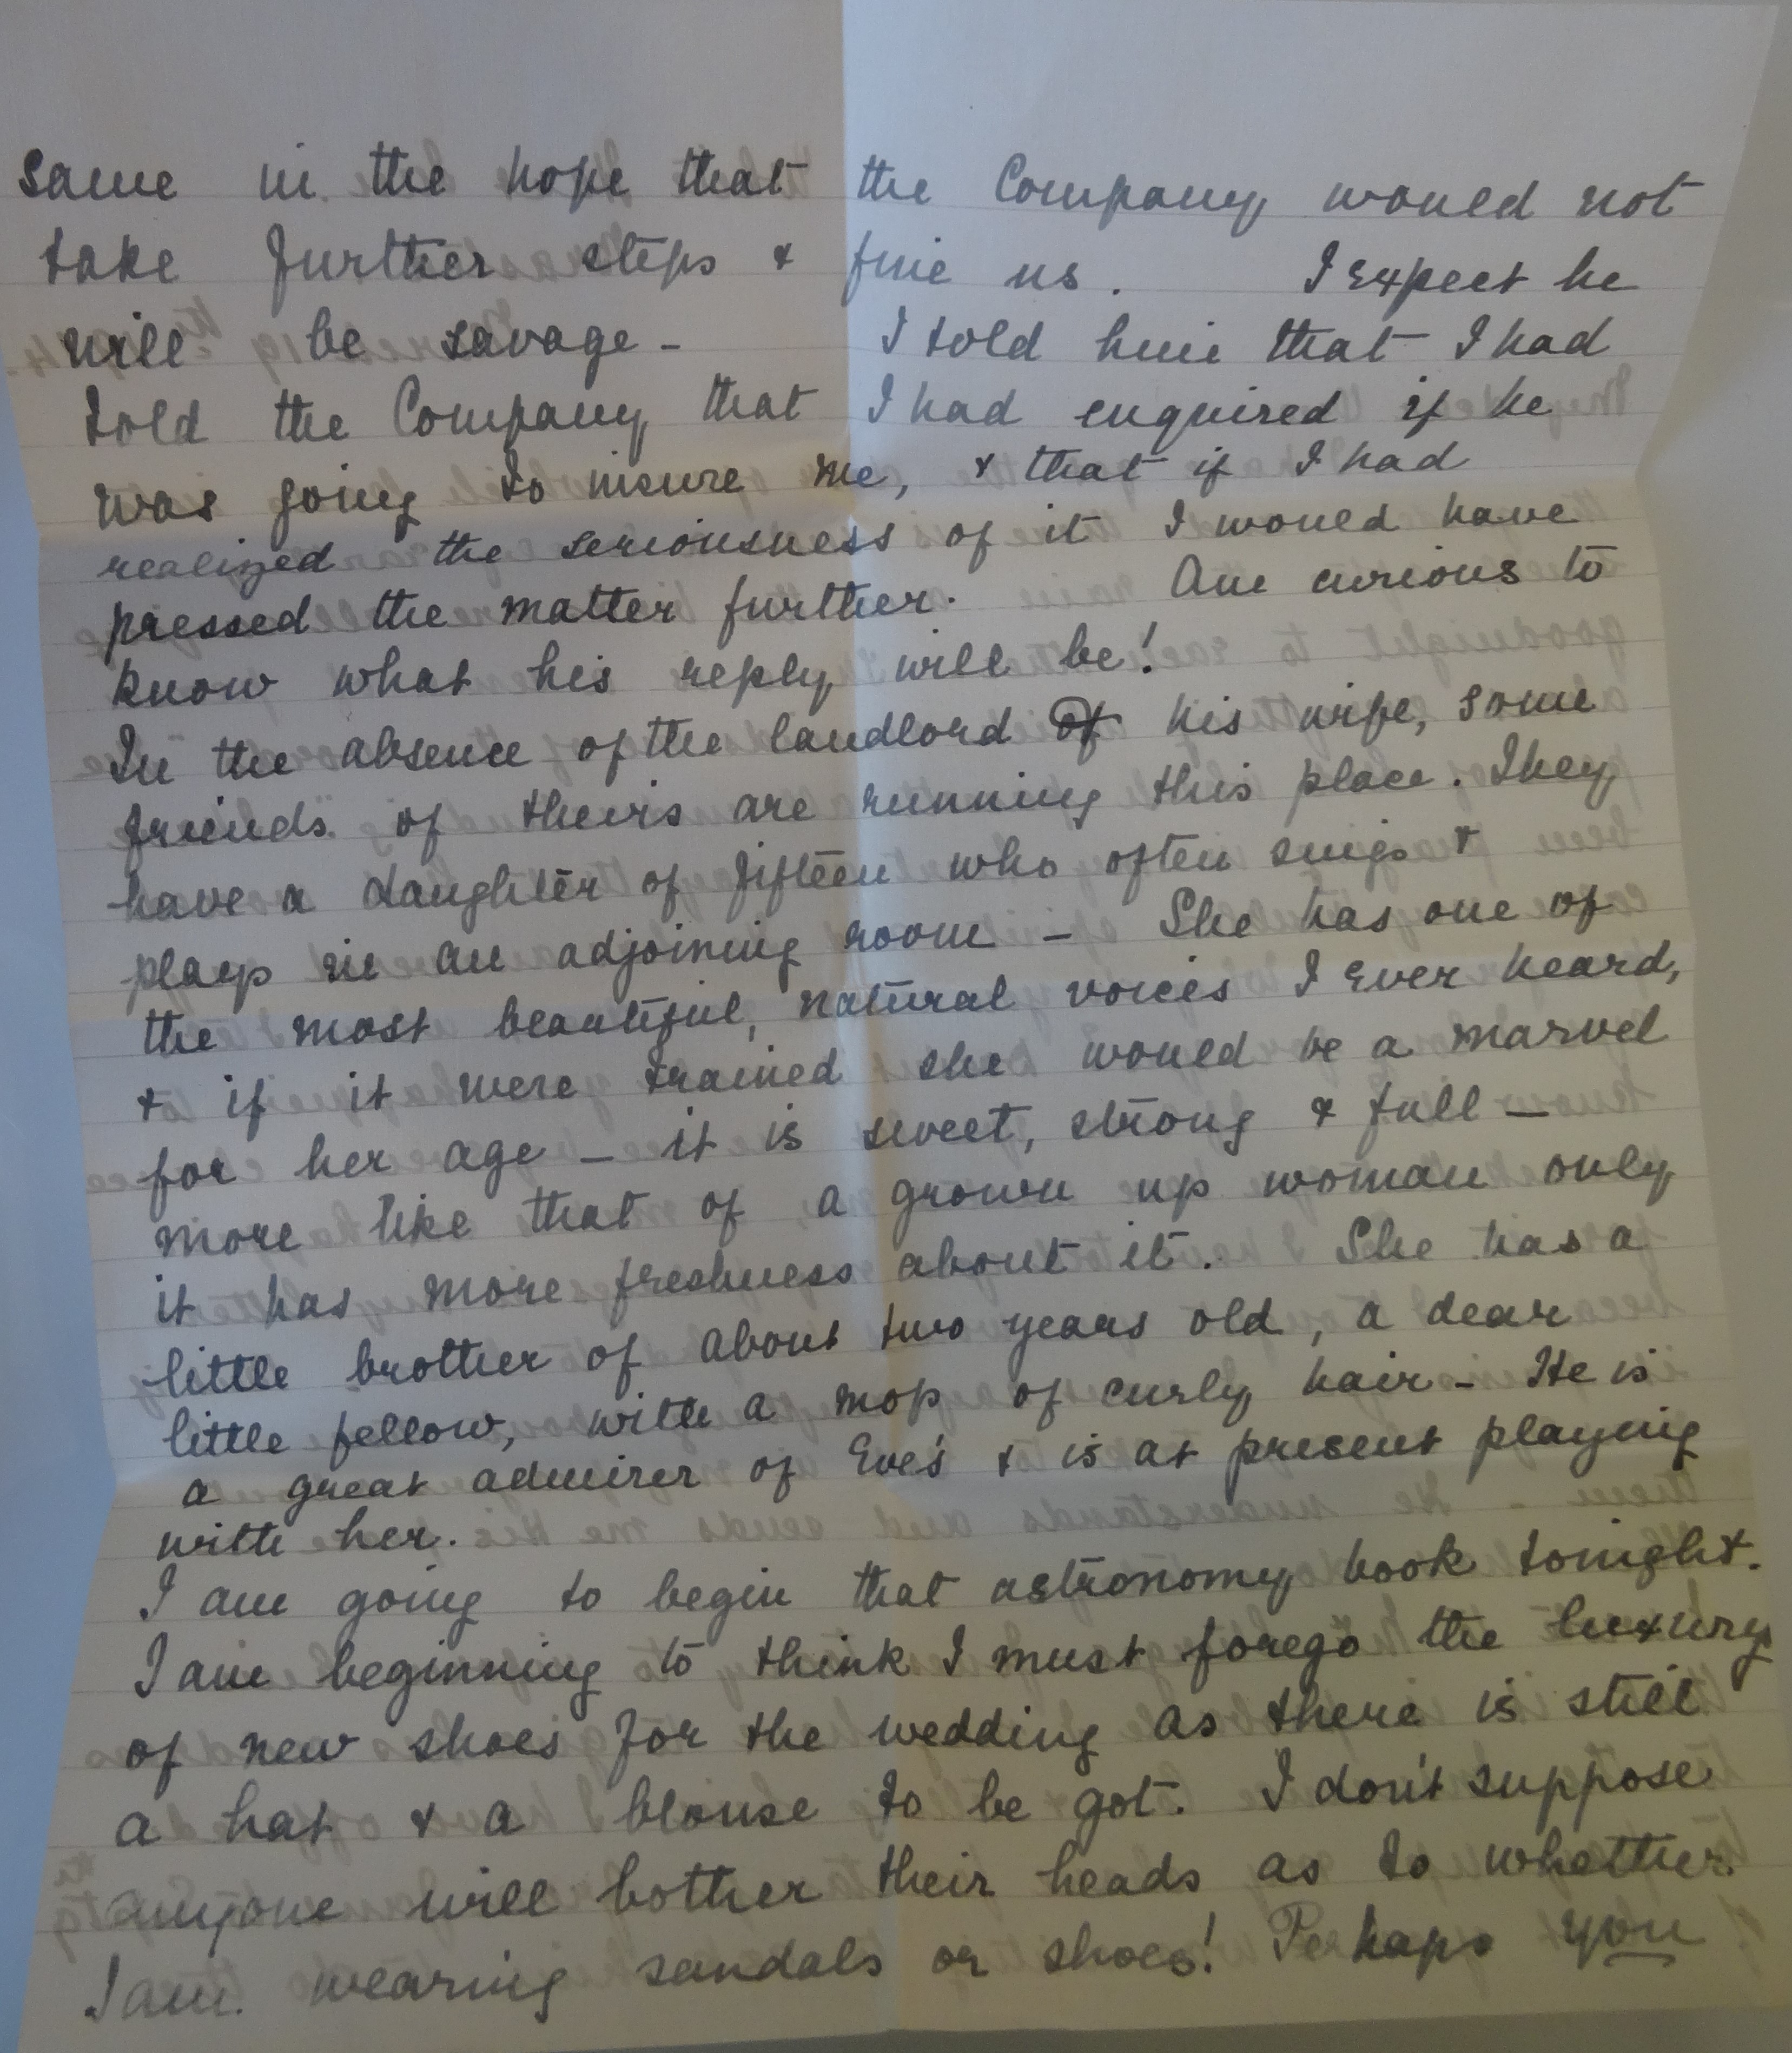 same in the hope that the Company would not
take further steps & fine us. I expect he
will be savage - I told him that I had
told the Company that I had enquired if he
was going to insure me, & that if I had
realized the seriousness of it I would have
pressed the matter further. Am curious to
know what his reply will be!
In the absence of the landlord of his wife, some
friends of theirs are running this place. They
have a daughter of fifteen who often sings &
plays in an adjoining room - She has one of
the most beautiful, natural voices I ever heard,
& if it were trained she would be a marvel
for her age - it is sweet, strong & full -
more like that of a grown up woman only
it has more freshness about it. She has a
little brother of about two years old, a dear
little fellow, with a mop of curly hair - He is
a great admirer of Eve's & is at present playing
with her.
I am going to begin that astronomy book tonight.
I am beginning to think I must forego the luxury
of new shoes for the wedding as there is still
a hat & a blouse to be got. I don't suppose
anyone will bother their heads as to whether
I am wearing sandals or shoes! Perhaps you